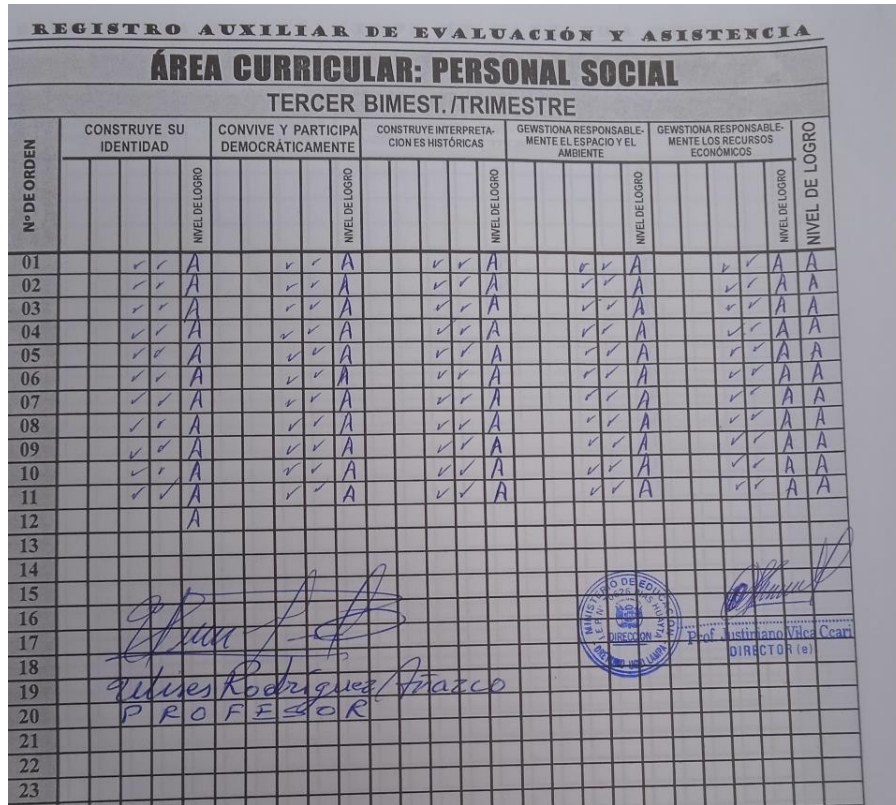 REGISTRO AUXILIAR DE EVALUACIÓN Y ASISTENCIA
ÁREA CURRICULAR: PERSONAL SOCIAL
TERCER BIMEST./TRIMESTRE
Nº DE ORDEN
CONSTRUYE SU IDENTIDAD
CONVIVE Y PARTICIPA DEMOCRÁTICAMENTE
CONSTRUYE INTERPRETA- CION ES HISTÓRICAS
GEWSTIONA RESPONSABLE- MENTE EL ESPACIO Y EL AMBIENTE
GEWSTIONA RESPONSABLE- MENTE LOS RECURSOS ECONÓMICOS
NIVEL DE LOGRO
NIVEL DE LOGRO
NIVEL DE LOGRO
NIVEL DE LOGRO
NIVEL DE LOGRO
NIVEL DE LOGRO
01 ✓ ✓ A ✓ ✓ A ✓ ✓ A ✓ ✓ A ✓ ✓ A A
02 ✓ ✓ A ✓ ✓ A ✓ ✓ A ✓ ✓ A ✓ ✓ A A
03 ✓ ✓ A ✓ ✓ A ✓ ✓ A ✓ ✓ A ✓ ✓ A A
04 ✓ ✓ A ✓ ✓ A ✓ ✓ A ✓ ✓ A ✓ ✓ A A
05 ✓ ✓ A ✓ ✓ A ✓ ✓ A ✓ ✓ A ✓ ✓ A A
06 ✓ ✓ A ✓ ✓ A ✓ ✓ A ✓ ✓ A ✓ ✓ A A
07 ✓ ✓ A ✓ ✓ A ✓ ✓ A ✓ ✓ A ✓ ✓ A A
08 ✓ ✓ A ✓ ✓ A ✓ ✓ A ✓ ✓ A ✓ ✓ A A
09 ✓ ✓ A ✓ ✓ A ✓ ✓ A ✓ ✓ A ✓ ✓ A A
10 ✓ ✓ A ✓ ✓ A ✓ ✓ A ✓ ✓ A ✓ ✓ A A
11 ✓ ✓ A ✓ ✓ A ✓ ✓ A ✓ ✓ A ✓ ✓ A A
12 A
13
14
15
16
17
18
19
20
21
22
23
Ulises Rodríguez Añazco
PROFESOR
MINISTERIO DE EDUCACIÓN
DIRECCION
Prof. Justiniano Vilca Ccari
DIRECTOR (e)